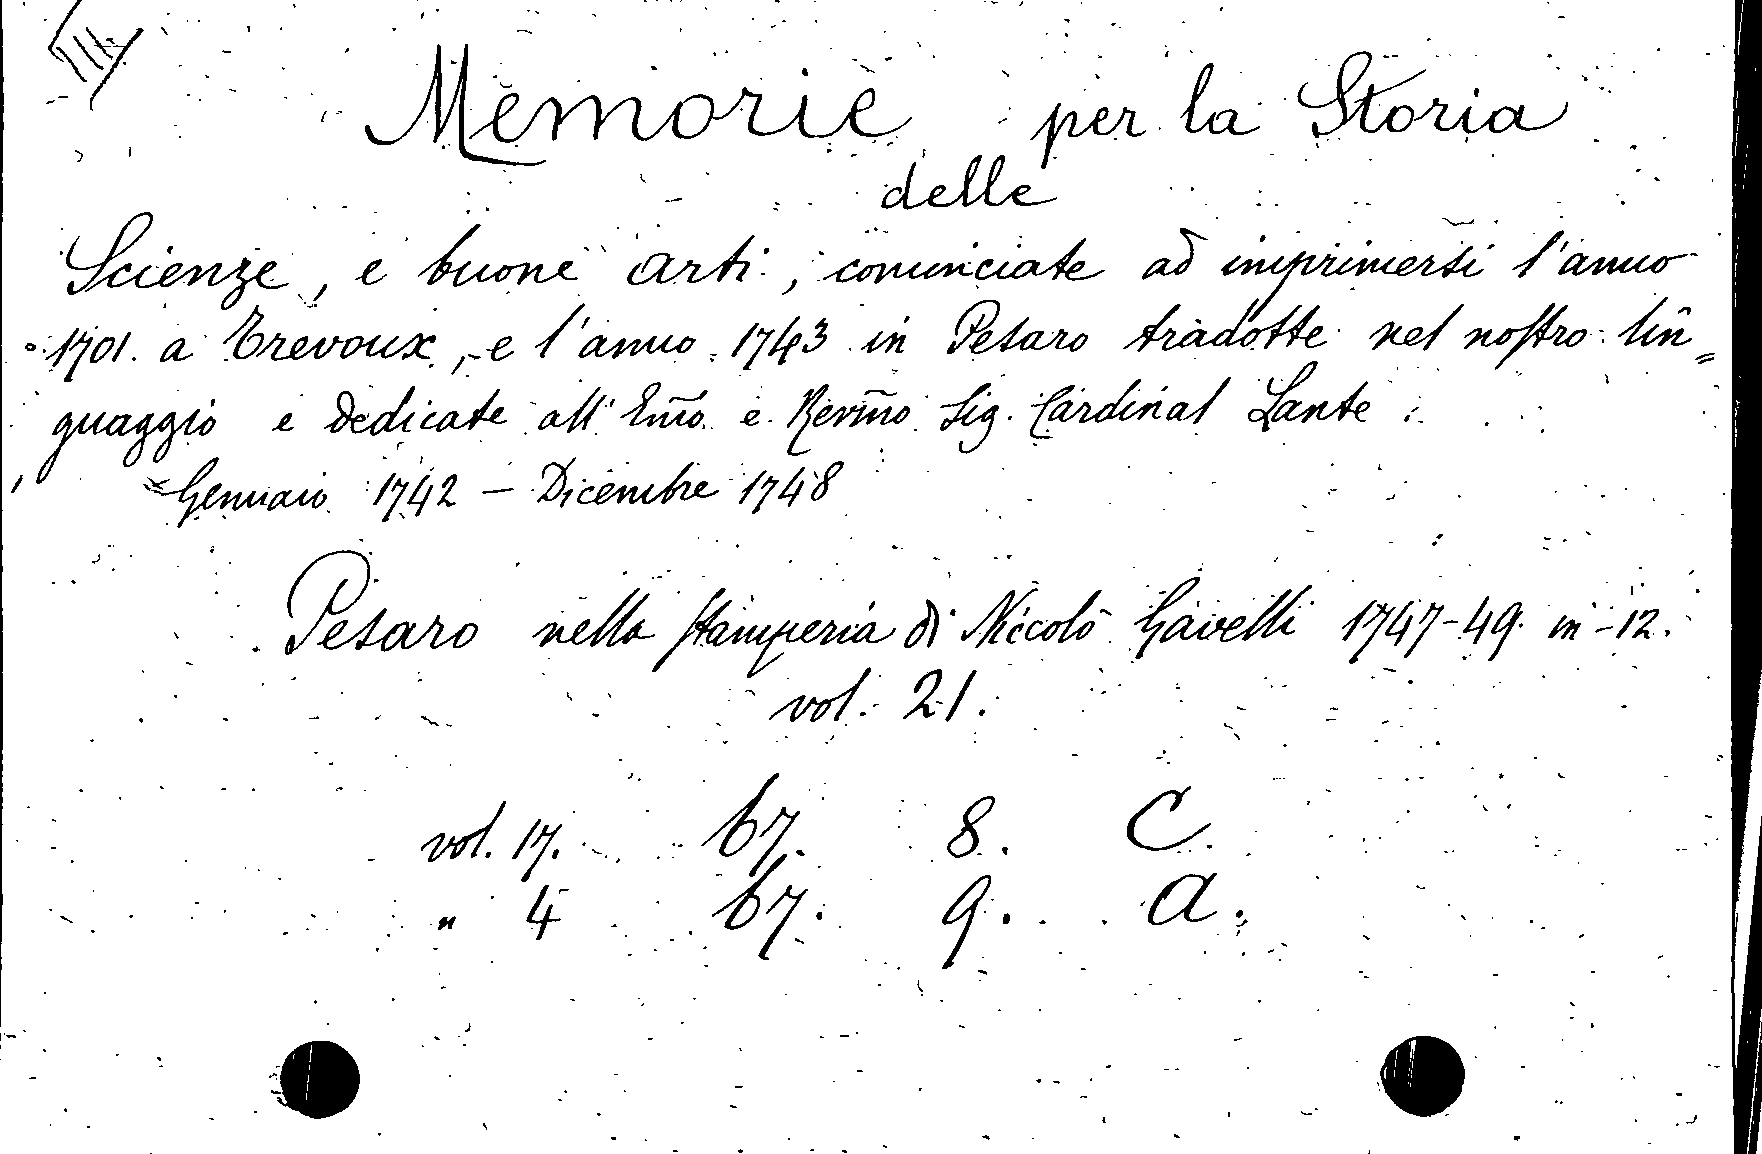 Memorie per la Storia
delle
Scienze, e buone arti, cominciate ad imprimersi l'anno
1701. a Trevoux, e l'anno 1743 in Pesaro tradotte nel nostro lin=
guaggio e dedicate all' Emo. e Revmo Sig. Cardinal Lante.
=Gennaio 1742 - Dicembre 1748
Pesaro nella stamperia di Niccolò Gavelli 1747-49. in-12.
vol. 21.
vol. 17. 67. 8. C.
" 4 67. 9. a.